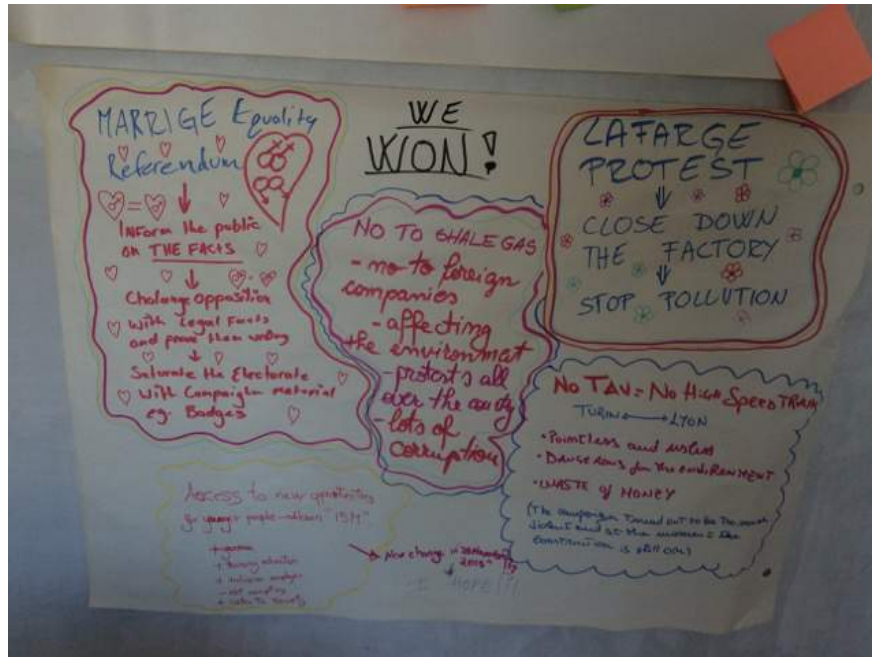 MARRIGE Equality
Referendum
INFORM the public
on THE FACTS
Challange opposition
with Legal Facts
and prove them wrong
Saturate the Electorate
With Campaign material
eg. Badges
WE
WON!
NO TO SHALE GAS
- no to foreign
companies
- affecting
the environment
- protests all
over the
- lots of
corruption
LAFARGE
PROTEST
CLOSE DOWN
THE FACTORY
STOP POLLUTION
NO TAV = NO HIGH SPEED TRAIN
TURIN LYON
• Pointless and
• DANGEROUS for the
• WASTE OF MONEY
(The campaign turned out to be
violent and at the moment the
construction is still on)
Access to new opportunities
for people
New change in
2015
I HOPE!!!